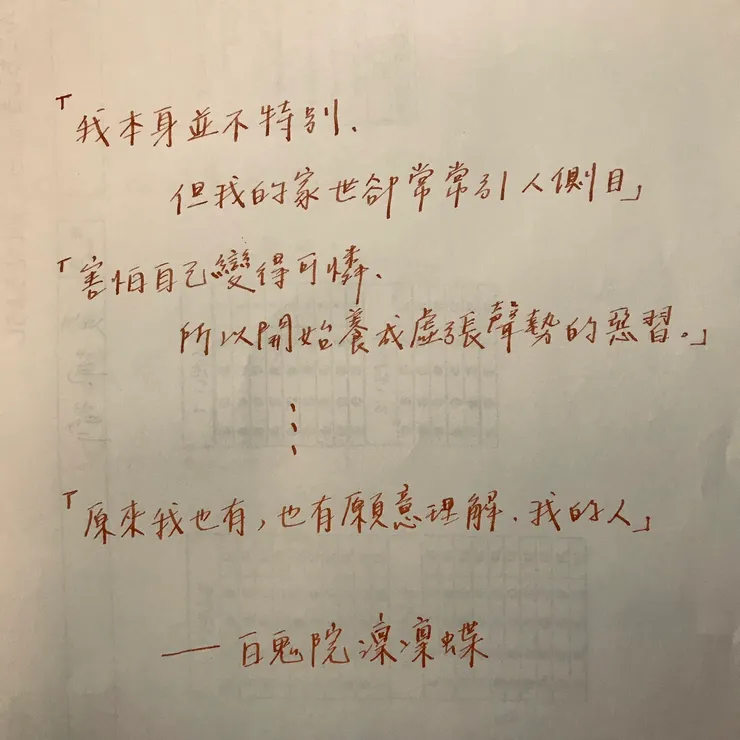 「我本身並不特別、
但我的家世卻常常引人側目」
「害怕自己變得可憐、
所以開始養成虛張聲勢的惡習。」
⋮
「原來我也有，也有願意理解、我的人」
——白鬼院凜凜蝶